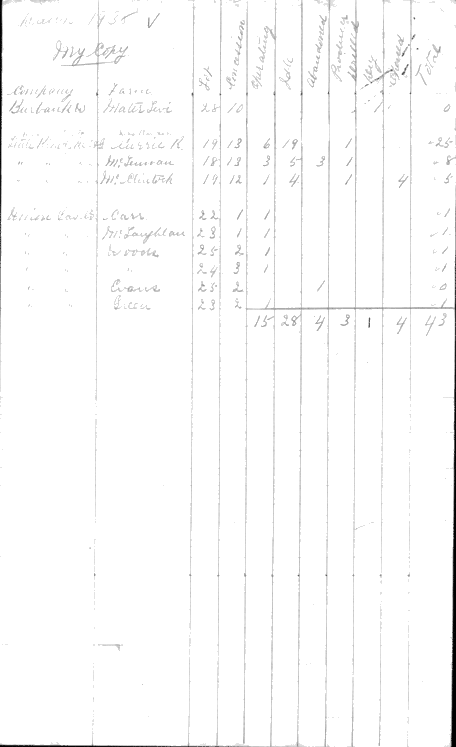 1935 √
My Copy
Company Farm Lot Concession Operating Idle Abandoned Producers Drilled Dry Total
Burbank W Mater Levi 28 10 1 0
Currie R 19 13 6 19 1 -25
" " " McLennan 18 13 3 5 3 1 -8
" " " McClintock 19 12 1 4 1 4 -5
Union Gas Co Carr 22 1 1 -1
" " McLaughlan 23 1 1 -1
" " Woods 25 2 1 -1
" " " 24 3 1 -1
" " Evans 25 2 1 -0
" " Green 23 2 1 -1
15 28 4 3 1 4 43